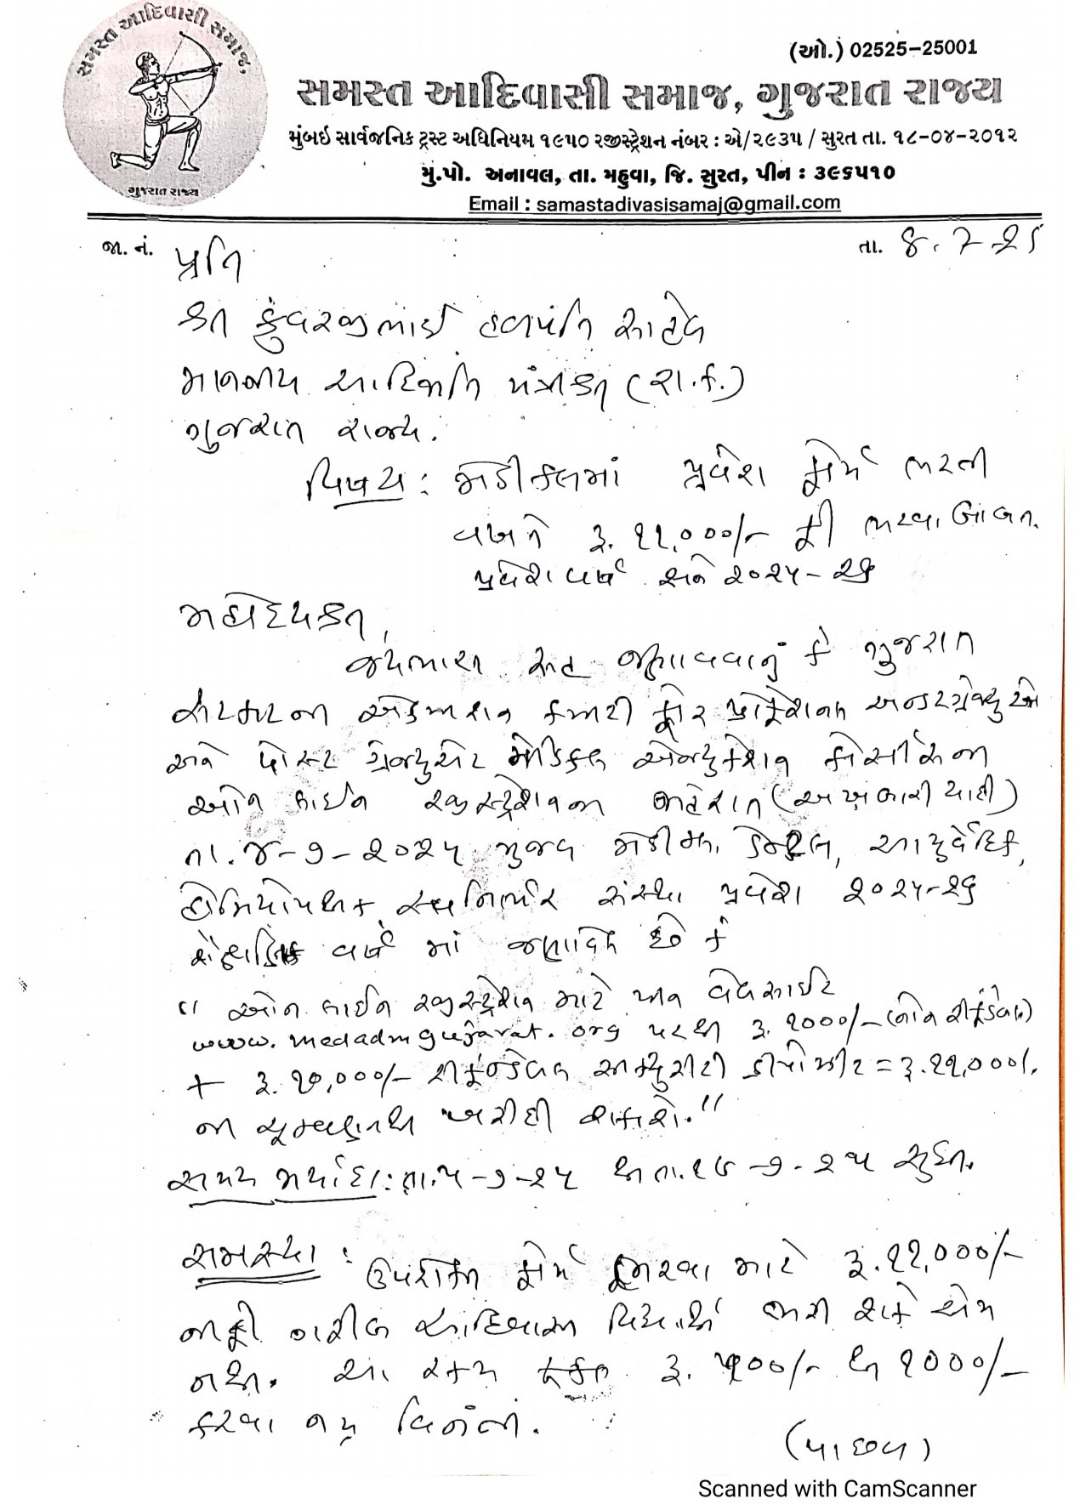 સમસ્ત આદિવાસી સમાજ,
ગુજરાત રાજ્ય
(ઓ.) 02525-25001
સમસ્ત આદિવાસી સમાજ, ગુજરાત રાજ્ય
મુંબઇ સાર્વજનિક ટ્રસ્ટ અધિનિયમ ૧૯૫૦ રજીસ્ટ્રેશન નંબર : એ/૨૯૩૫ / સુરત તા. ૧૮-૦૪-૨૦૧૨
મું.પો. અનાવલ, તા. મહુવા, જિ. સુરત, પીન : ૩૯૬૫૧૦
Email : samastadivasisamaj@gmail.com
જા. નં.
તા. ૪.૭-૨૫
પ્રતિ
શ્રી કુંવરજીભાઈ હળપતિ સાહેબ
માનનીય આદિજાતિ મંત્રીશ્રી (રા.ક.)
ગુજરાત રાજ્ય.
વિષય : મેડીકલમાં પ્રવેશ ફોર્મ ભરતી
વખતે રૂ. ૧૧,૦૦૦/- ફી ભરવા બાબત.
પ્રવેશ વર્ષ સને ૨૦૨૫-૨૬
મહોદયશ્રી,
જયભારત સાથ જણાવવાનું કે ગુજરાત
સરકારના એડમીશન કમીટી ફોર પ્રોફેશનલ અન્ડરગ્રેજ્યુએટ
અને પોસ્ટ ગ્રેજ્યુએટ મેડિકલ એજ્યુકેશન કોર્સીસના
ઓન લાઈન રજીસ્ટ્રેશનની જાહેરાત (અખબારી યાદી)
તા. ૪-૭-૨૦૨૫ મુજબ મેડીકલ, ડેન્ટલ, આયુર્વેદિક,
હોમિયોપેથીક સ્વનિર્ભર સંસ્થા પ્રવેશ ૨૦૨૫-૨૬
શૈક્ષણિક વર્ષ માં જણાવેલ છે કે
"ઓન લાઈન રજીસ્ટ્રેશન માટે વેબસાઈટ
www.medadmgujarat.org પરથી રૂ. ૧૦૦૦/- (નોન રીફંડેબલ)
+ રૂ. ૧૦,૦૦૦/- રીફંડેબલ સીક્યુરીટી ડીપોઝીટ = રૂ. ૧૧,૦૦૦/.
ના ચૂકવણાથી ખરીદી શકાશે."
સમય મર્યાદા : તા. ૫-૭-૨૫ થી તા. ૧૪-૭-૨૫ સુધી.
સમસ્યા : ઉપરોક્ત ફોર્મ ભરવા માટે રૂ. ૧૧,૦૦૦/-
ગરીબ આદિવાસી વિદ્યાર્થી ભરી શકે એમ
નથી. આ રકમ રૂ. ૫૦૦/- થી ૧૦૦૦/-
કરવા નમ્ર વિનંતી.
(પાછળ)
Scanned with CamScanner